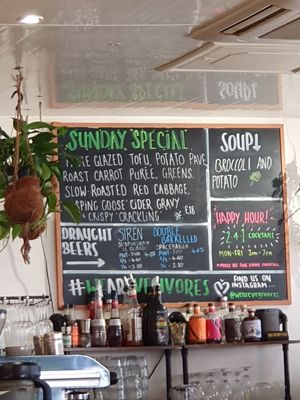 SUNDAY SPECIAL
GLAZED TOFU, POTATO PAVE
ROAST CARROT PUREE, GREENS.
SLOW-ROASTED RED CABBAGE.
GOOSE CIDER GRAVY
& CRISPY CRACKLING £18
SOUP↓
BROCCOLI AND
POTATO
HAPPY HOUR!
241 COCKTAILS
MON-FRI 3PM-7PM
*MUST BE THE SAME COCKTAIL
DRAUGHT
BEERS
→
SIREN
DOUBLE
BARRELLED
#WEAREVEGIVORES
FIND US ON
INSTAGRAM...
@wearevegivores